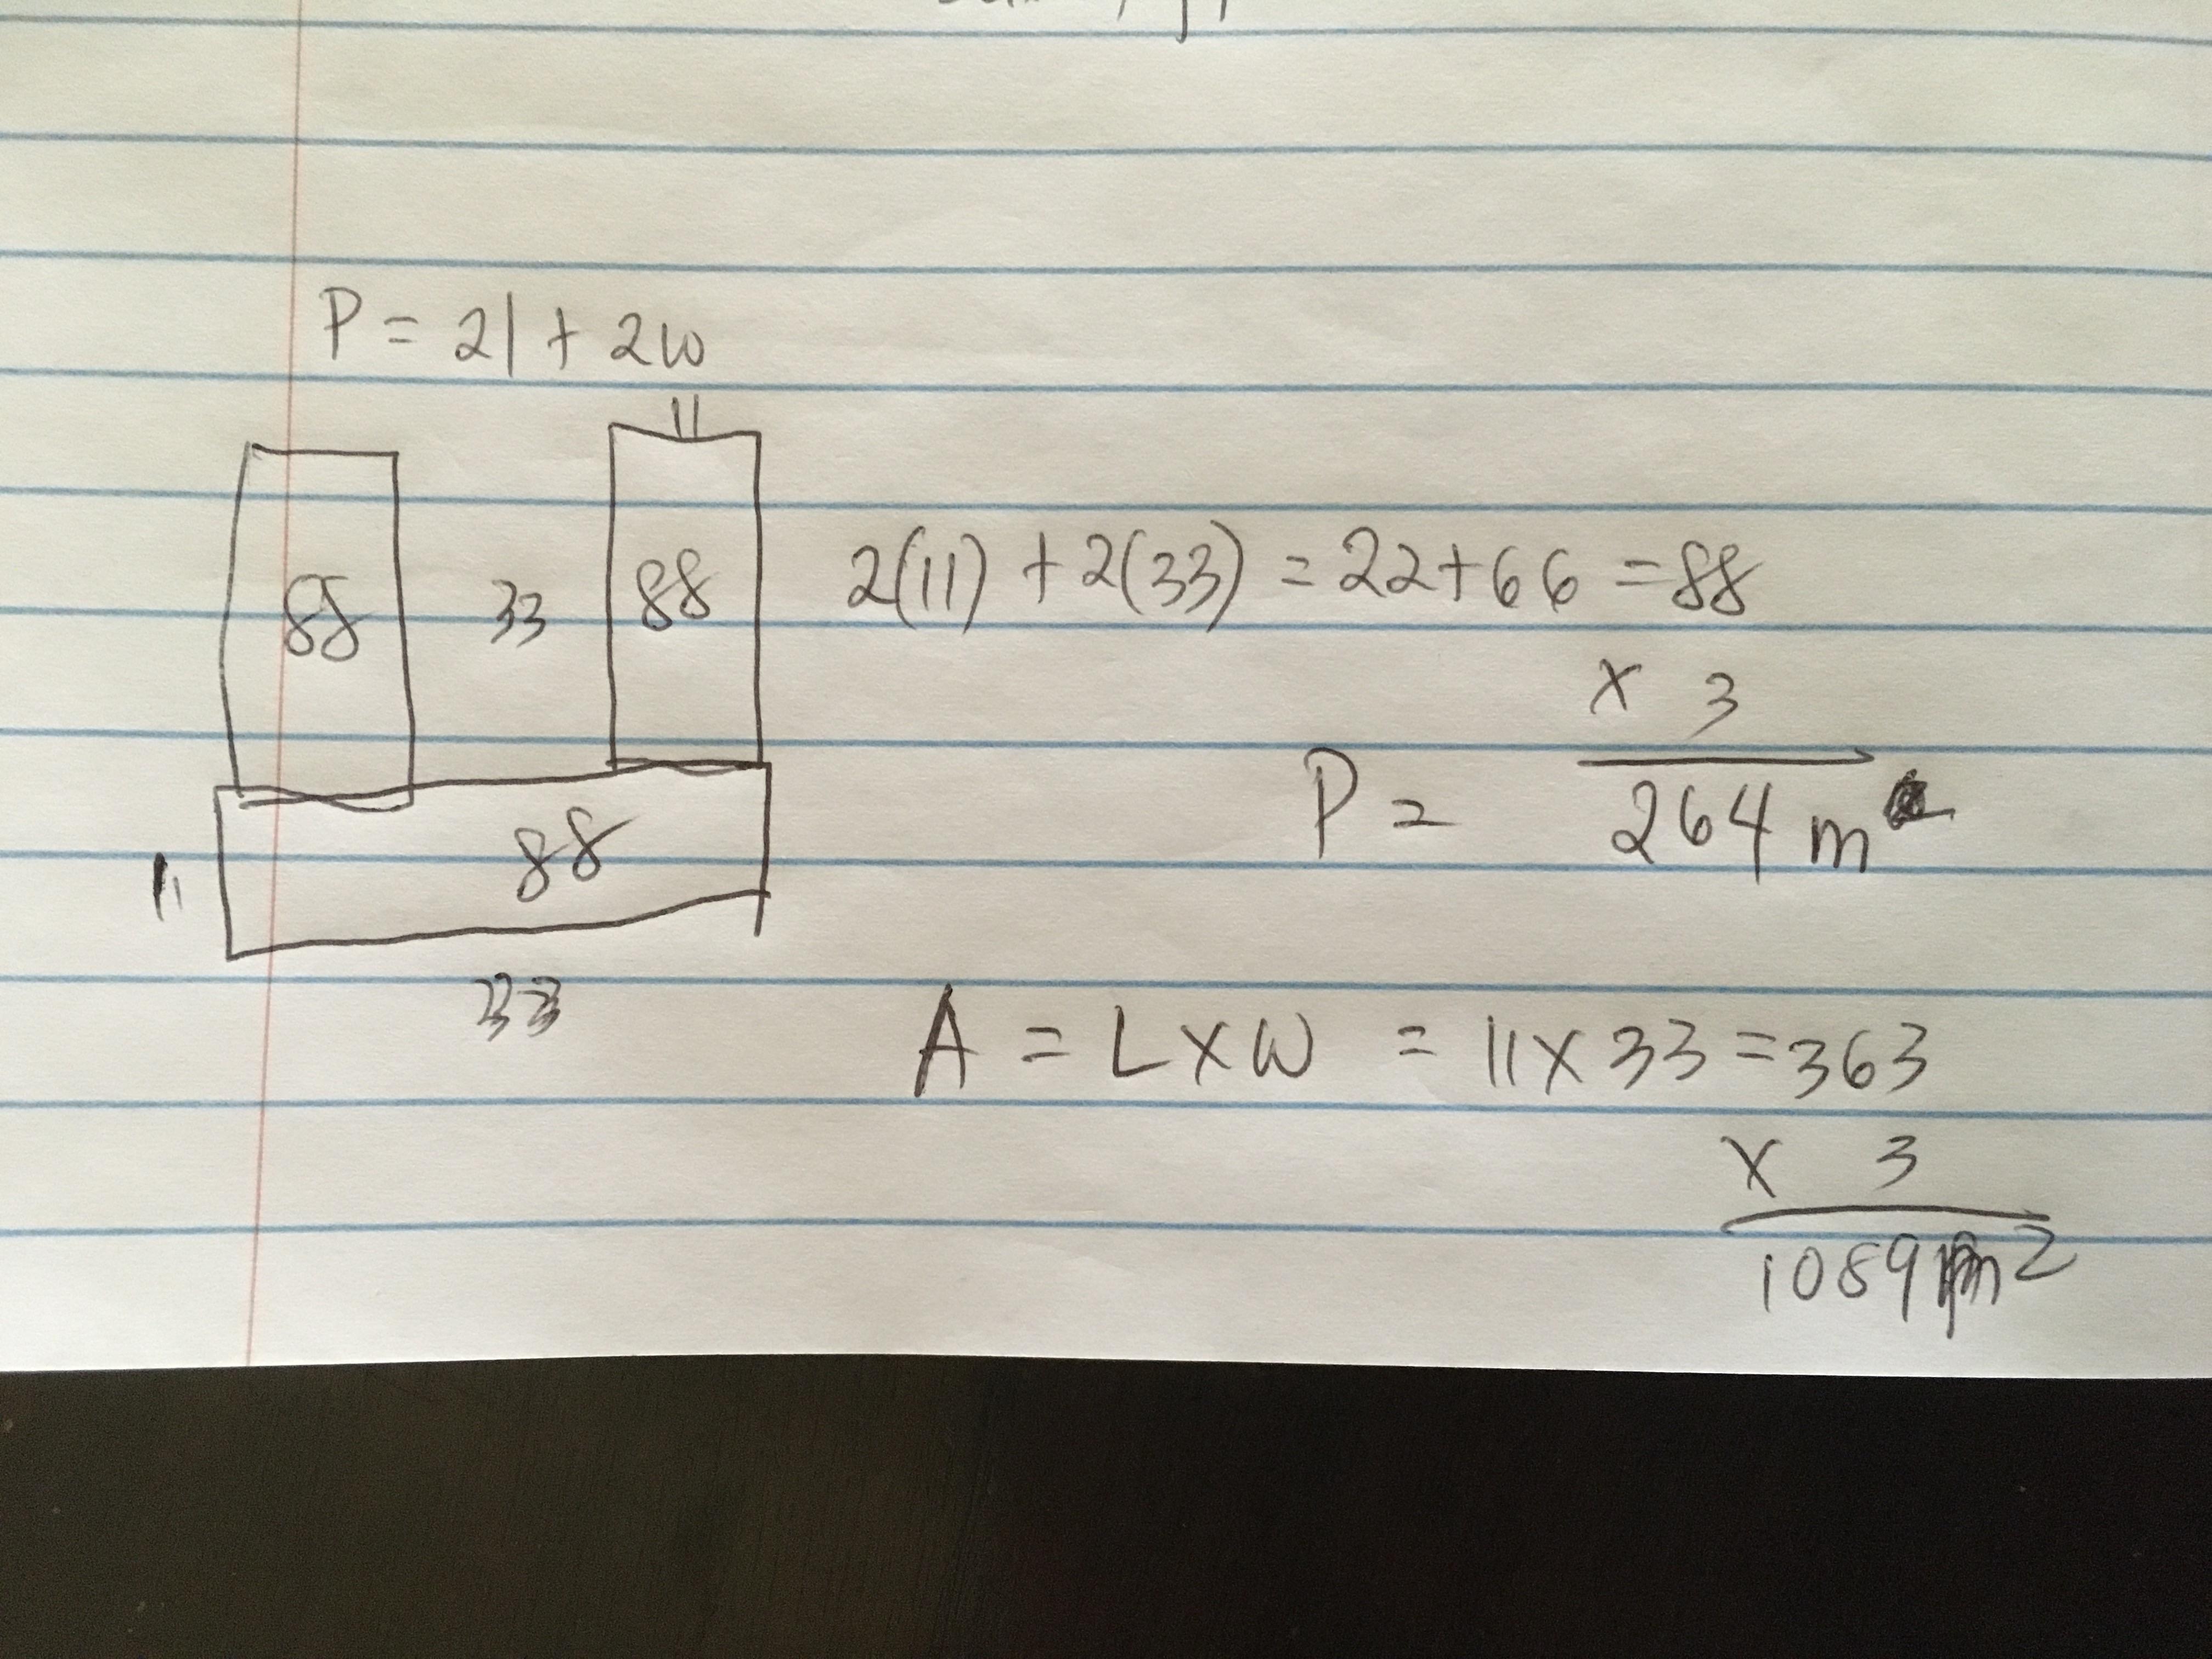 P = 2l + 2w
11
88 33 88 2(11) + 2(33) = 22 + 66 = 88
x 3
P = 264 m
88
11
33
A = L x W = 11 x 33 = 363
x 3
1089 m2